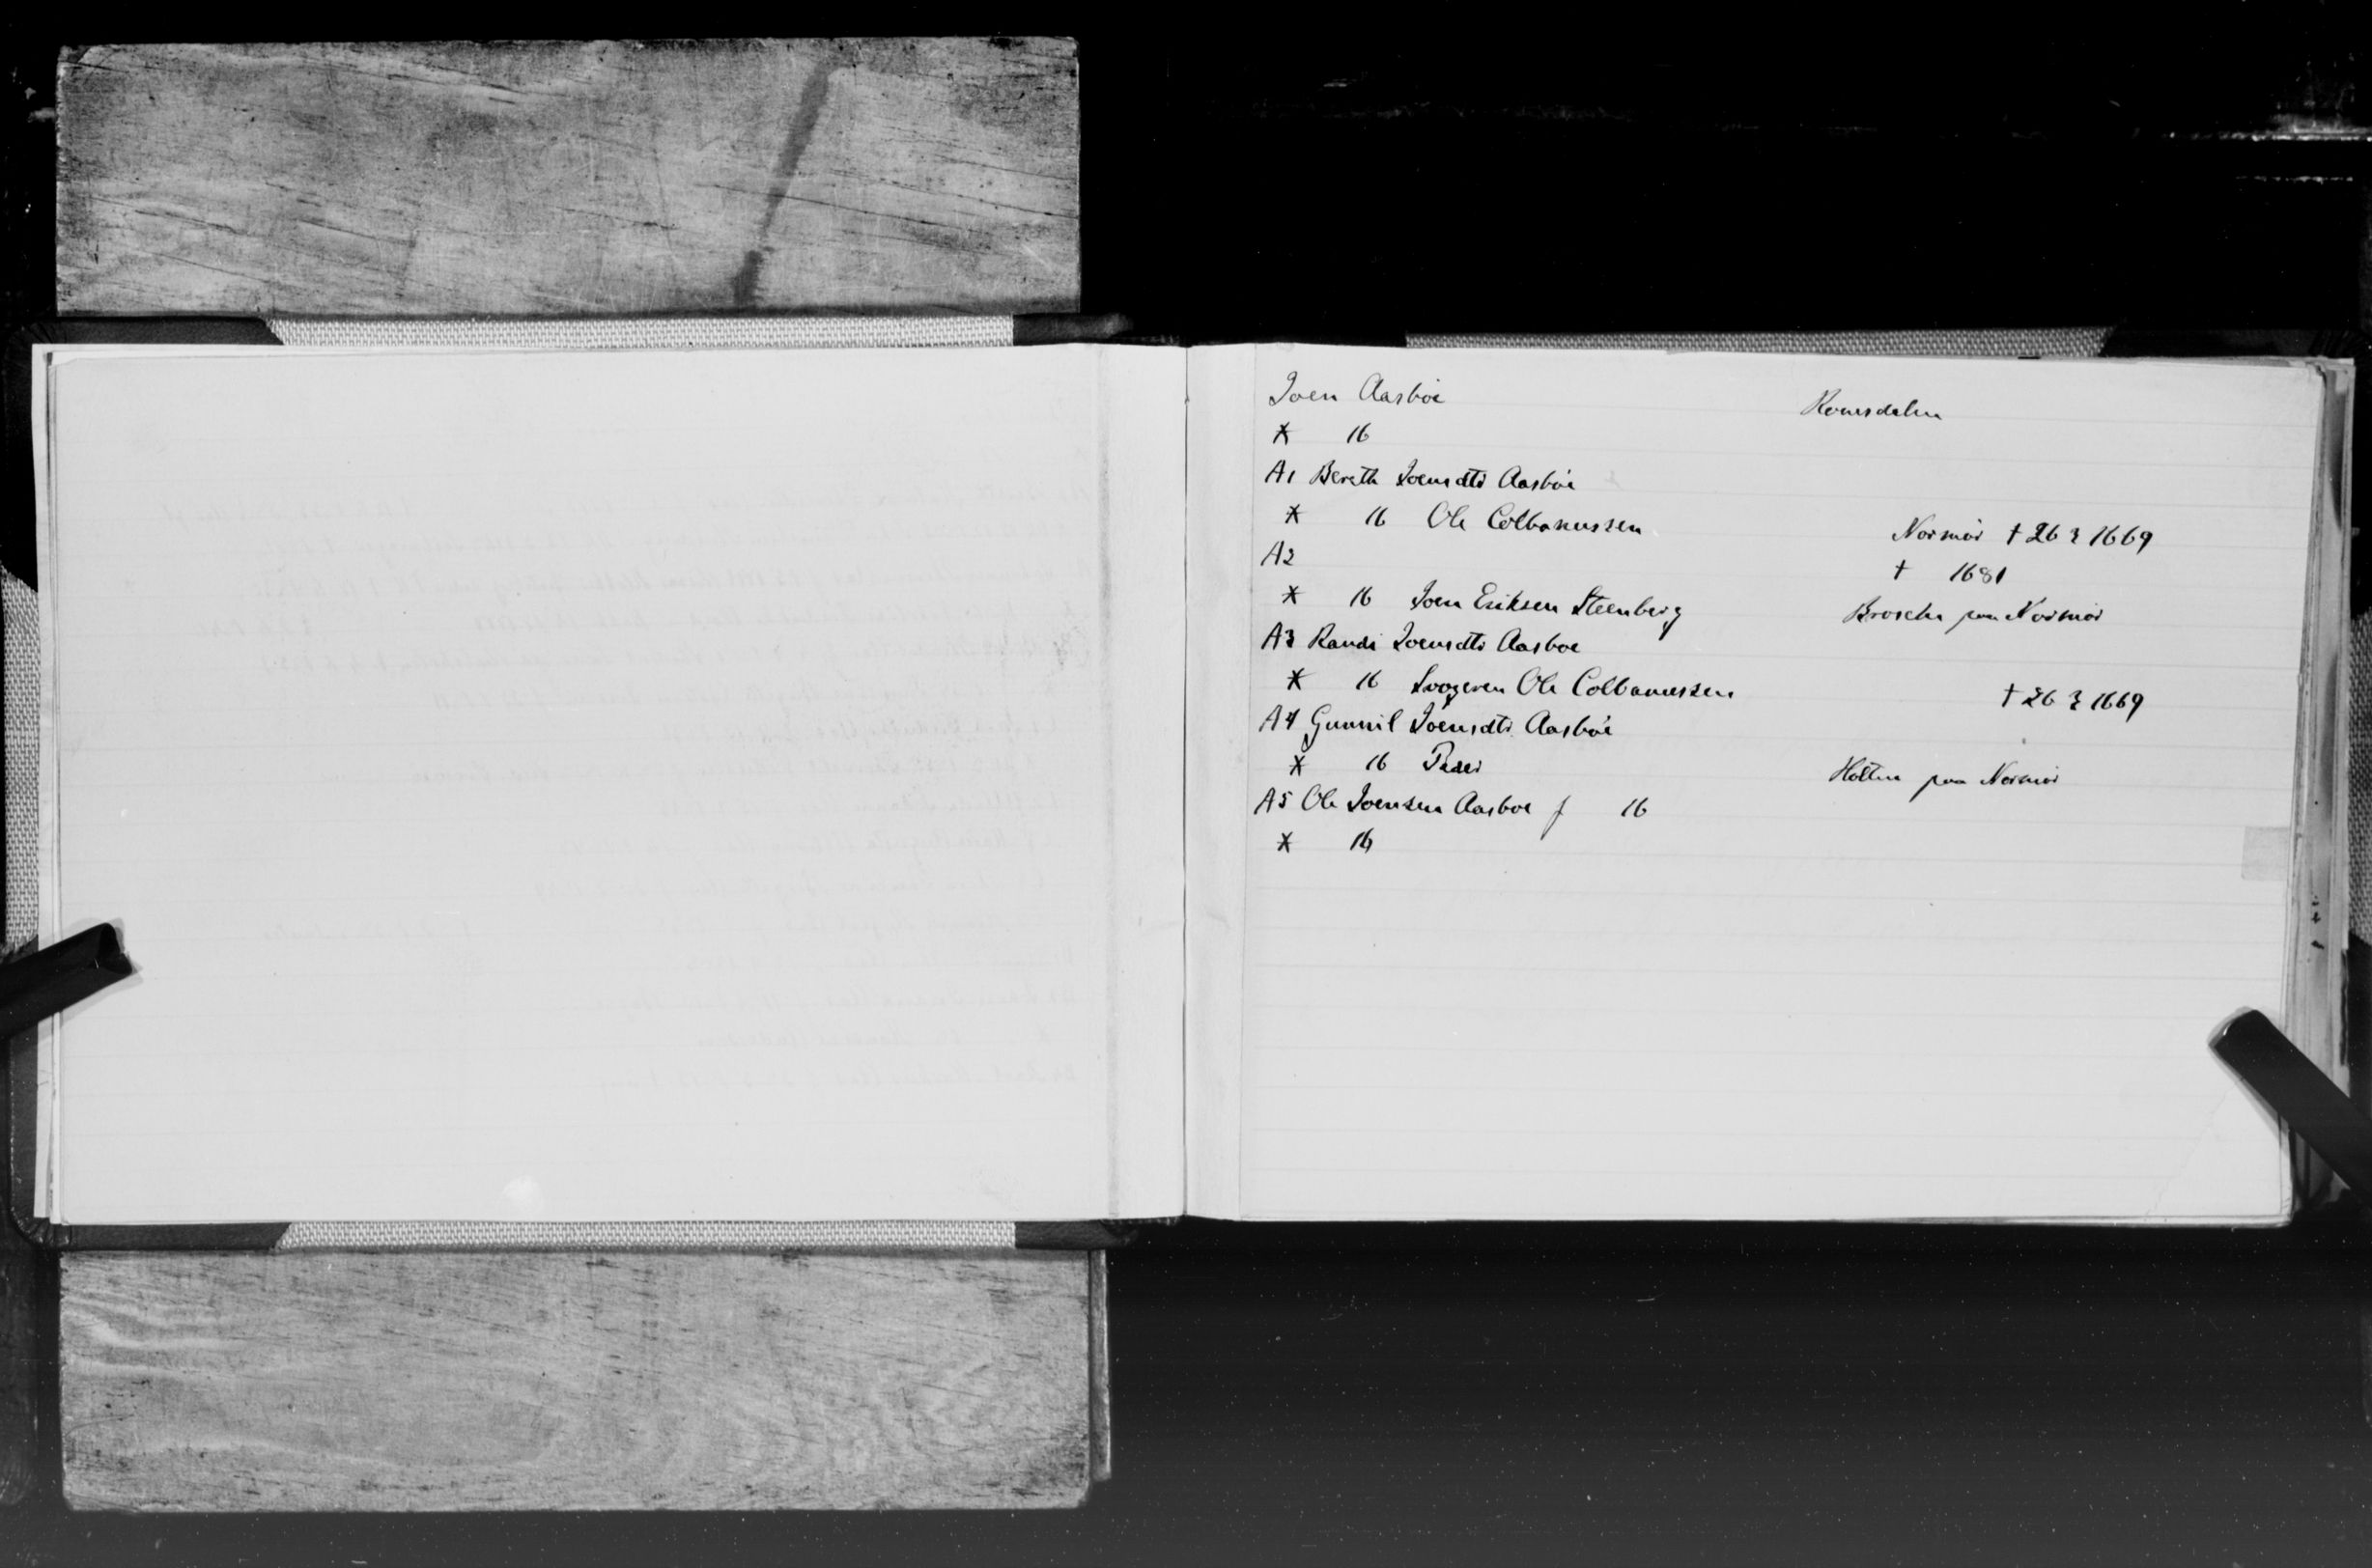 Joen Aasböe Romsdalen
* 16
A1 Bereth Joensdtr Aasböe
* 16 Ole Colbanussen Normör † 26 3 1669
A2 † 1681
* 16 Joen Eriksen Steenberg paa Normör
A3 Randi Joensdtr Aasboe
* 16 Svogeren Ole Colbanussen † 26 3 1669
A4 Gunnil Joensdtr Aasböe
* 16 Peder Holten paa Normör
A5 Ole Joensen Aasboe f 16
* 16